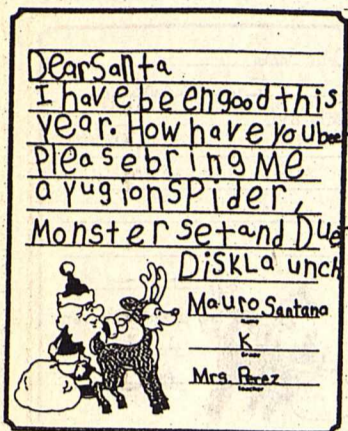 Dear Santa
I have been good this
year. How have you bee
Please bring Me
a yugionSPider,
Monster set and Due
DiSK Launch
Mauro Santana
name
K
grade
Mrs. Perez
teacher